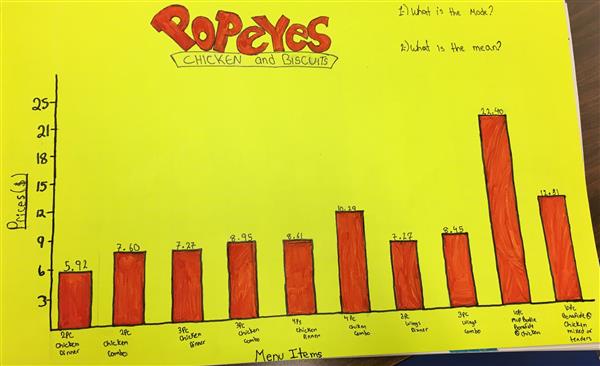 POPEYES
CHICKEN and BISCUITS
1.) What is the Mode?
2.) What is the mean?
Prices($)
25
21
18
15
12
9
6
3
5.92
7.60
7.27
8.95
8.61
10.29
7.27
8.45
22.40
2PC
Chicken
Dinner
2PC
Chicken
Combo
3PC
Chicken
Dinner
3PC
Chicken
Combo
4PC
Chicken
Dinner
4PC
Chicken
Combo
Wings
Dinner
3PC
Wings
Combo
Bonafide
chicken
Bonafide
Chicken
mixed or
tenders
Menu Items